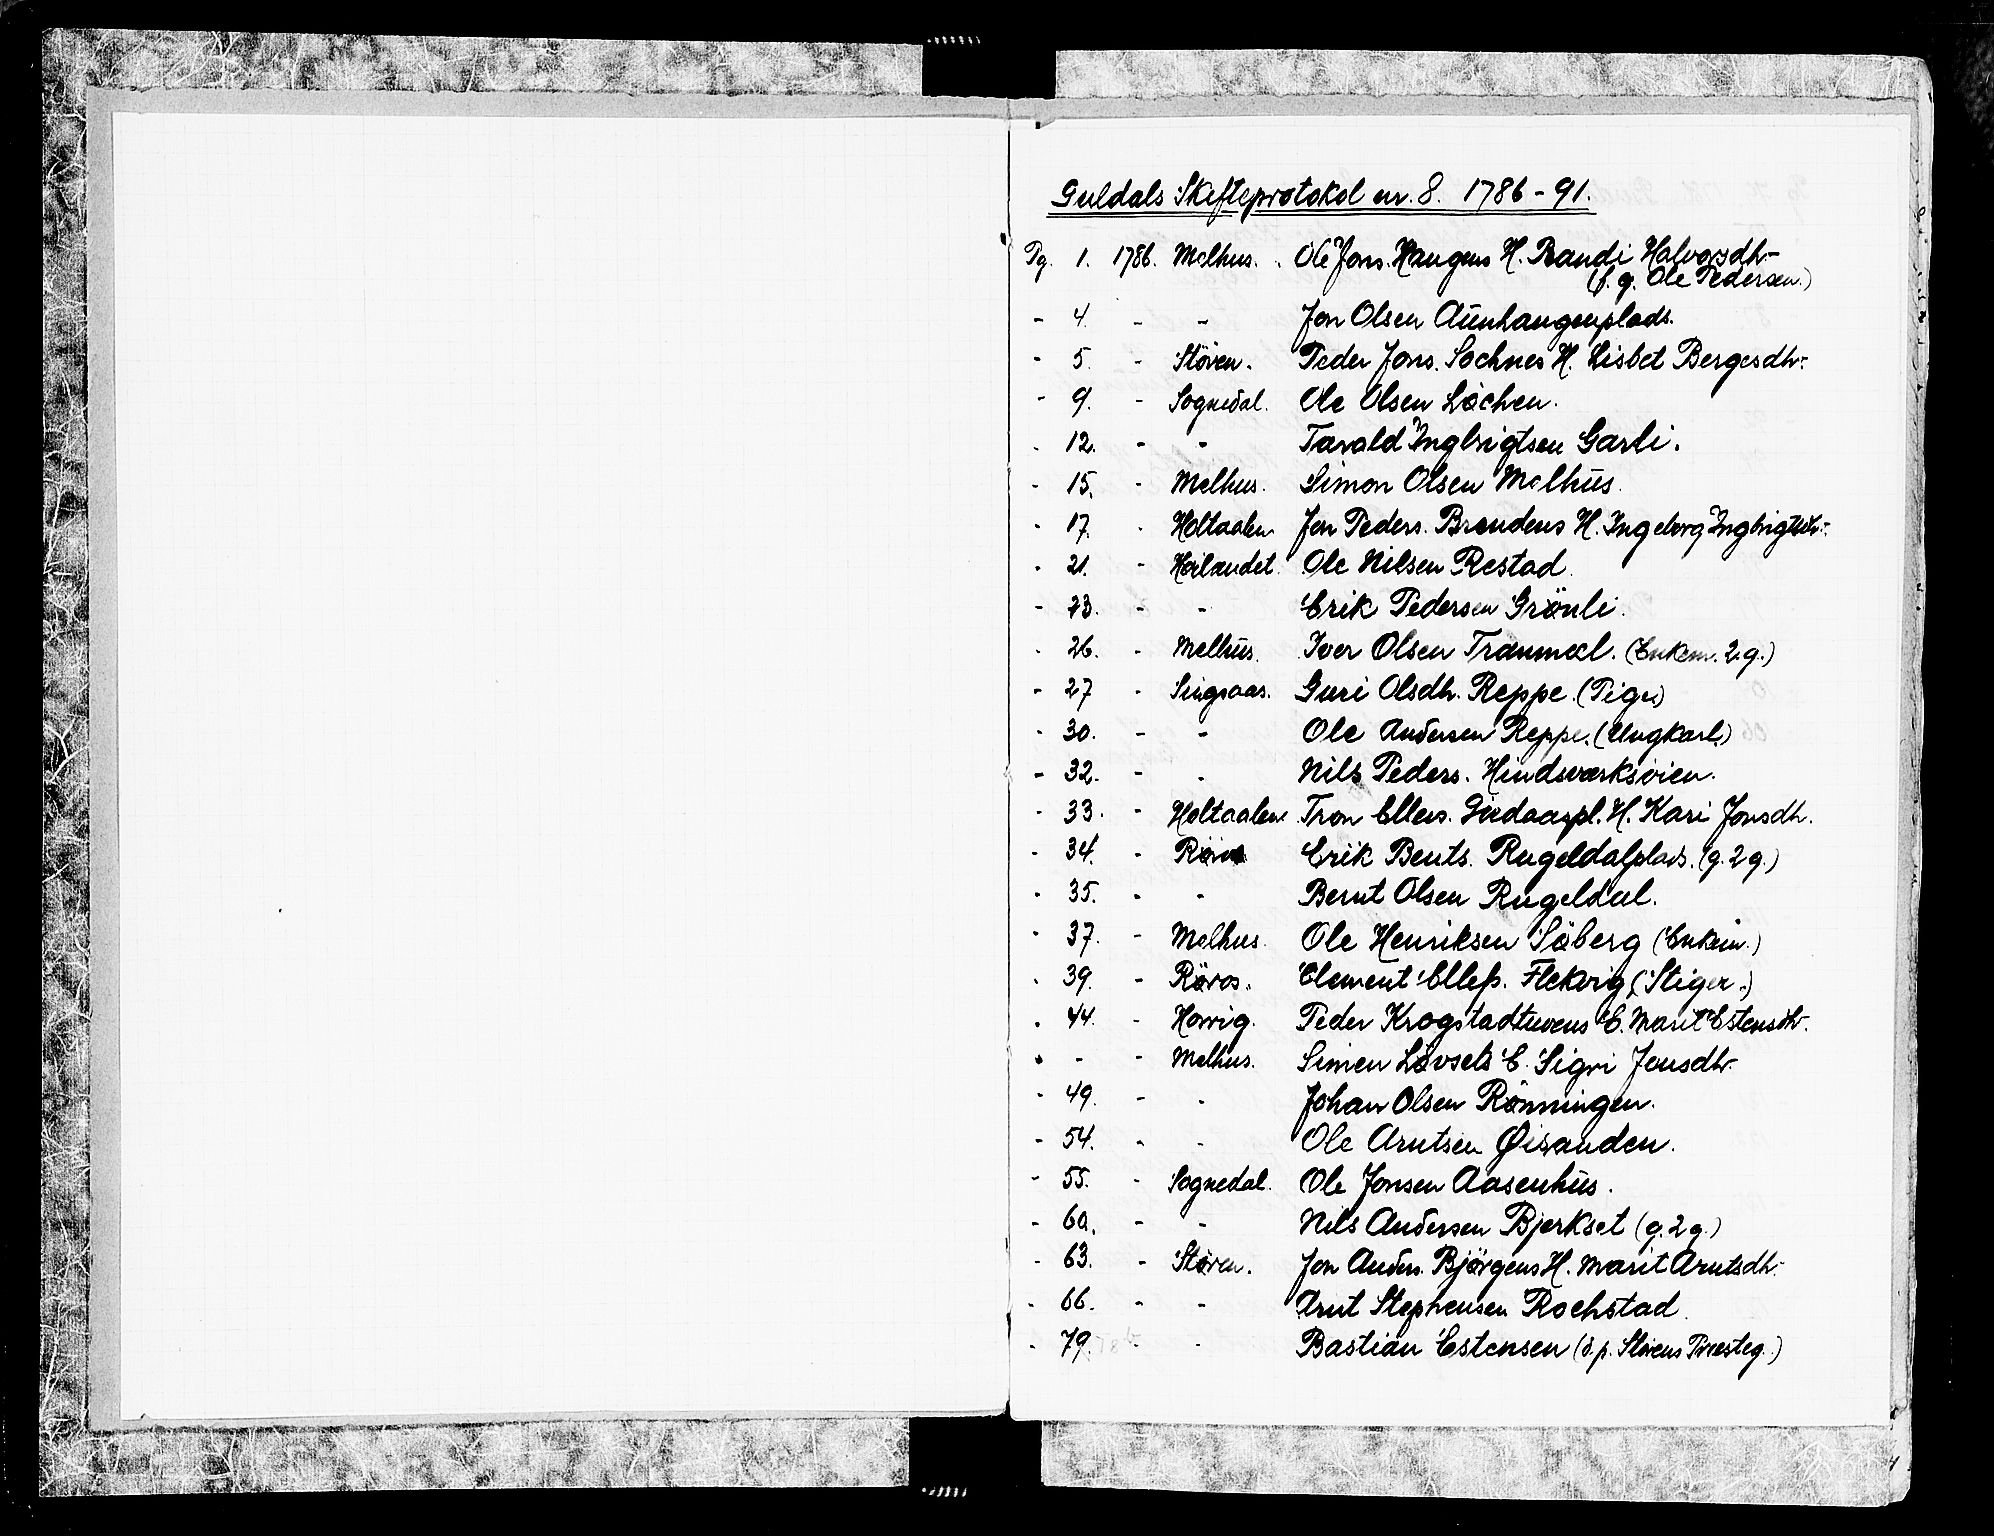 Guldals Skifteprotokol nr. 8. 1786-91.
Pg. 1. 1786. Melhus. Ole Jons. Haugens H. Randi Halvorsdtr-
(f. g. Ole Pedersen.)
- 4. - - Jon Olsen Aünhaugenplads.
- 5. - Støren. Peder Jons. Soknes H. Lisbet Bergesdtr:
- 9. - Sognedal. Ole Olsen Løchen.
- 12. - - Tarald Ingbrigtsen Garli.
- 15. - Melhus. Simon Olsen Melhüs.
- 17. - Holtaalen Jon Peders. Brendens H. Ingeborg Ingbrigtsdtr:
- 21. - Høilandet. Ole Nilsen Restad.
- 23. - - Erik Pedersen Grönli.
- 26. - Melhüs. Iver Olsen Tranmæl. (Enkem. 2.g.)
- 27 - Singsaas. Guri Olsdtr. Reppe. (Pige)
- 30. - - Ole Andersen Reppe. (Ungkarl.)
- 32. - - Nils Peders. Hindsværksvien.
- 33. - Holtaalen Tron Ellevs. Gredaaspl. H. Kari Jonsdtr.
- 34. - Röros Erik Bents. Rugeldalplads. (g. 2 g.)
- 35. - - Bernt Olsen Rugeldal.
- 37. - Melhus. Ole Henriksen Söberg (Enkem.)
- 39. - Røros. Clement Ellefs. Flekvig (Stiger.)
- 44. - Horrig. Peder Krogstadtuvens E. Marit Estensdtr.
- - - Melhus. Simen Løvsets E. Sigri Jensdtr-
- 49. - - Johan Olsen Rønningen.
- 54. - - Ole Arntsen Øisanden.
- 55. - Sognedal. Ole Jonsen Aasenhüs.
- 60. - - Nils Andersen Bjerkset (g. 2 g.)
- 63. - Støren. Jon Anders. Bjørgens H. Marit Arntsdtr:
- 66. - - Arnt Stephensen Rochstad.
- 79. - - Bastian Estensen (d. p. Störens Præsteg.)